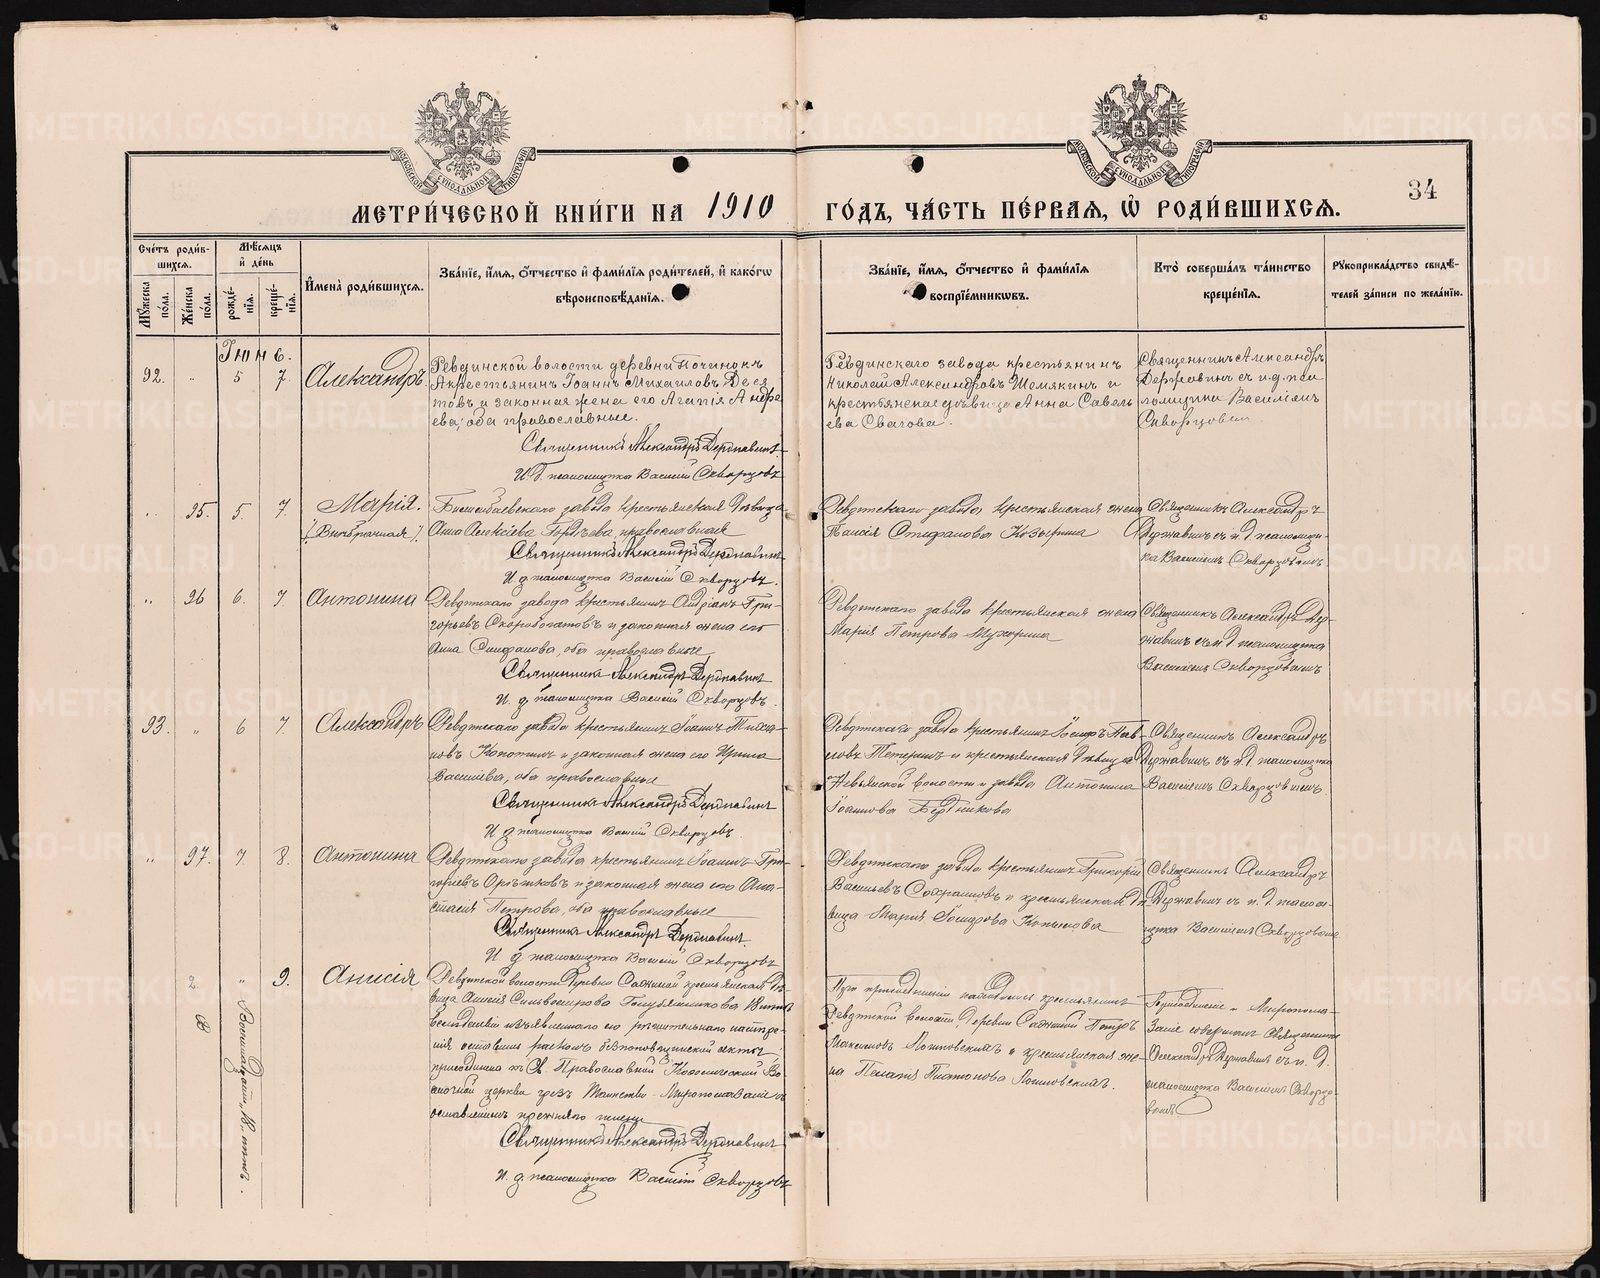 МЕТРИ́ЧЕСКОЙ КНИ́ГИ НА 1910 ГО́ДЪ, ЧА́СТЬ ПЕ́РВАЯ, Ѡ҆ РОДИ́ВШИХСЯ.
34
МОСКОВСКОЙ СѴНОДАЛЬНОЙ ТИПОГРАФІИ
МОСКОВСКОЙ СѴНОДАЛЬНОЙ ТИПОГРАФІИ
Сче́тъ роди́вшихся.
Мѹ́жеска по́ла.
Же́нска по́ла.
Мѣ́сяцъ и҆ де́нь
рожде́нїя.
креще́нїя.
И҆мена̀ роди́вшихся.
Зва́нїе, и҆́мя, ѻ҆́тчество и҆ фами́лїя роди́телей, и҆ како́гѡ
вѣроисповѣ́данїя.
Зва́нїе, и҆́мя, ѻ҆́тчество и҆ фами́лїя
воспрїе́мникѡвъ.
Кто̀ соверша́лъ та́инство
креще́нїя.
Рукоприкла́дство свидѣ́-
телей за́писи по жела́нїю.
Іюнь.
92. " 5 7. Александръ
Ревдинской волости деревни Починокъ
крестьянинъ Іоаннъ Михаиловъ Деся
товъ и законная жена его Агапія Андре
ева, оба православные.
Священникъ Александръ Державинъ
И. д. псаломщика Василій Скворцовъ
Ревдинскаго завода крестьянинъ
Николай Александровъ Шемякинъ и
крестьянская дѣвица Анна Савель
ева
Священникъ Александръ
Державинъ съ и. д. пса
ломщика Василіемъ
Скворцовым
" 95. 5. 7. Марія.
(Внѣбрачная).
завода крестьянская дѣвица
Анна Алексіева православная
Священникъ Александръ Державинъ
И д. псаломщика Василій Скворцовъ.
Ревдинскаго завода крестьянская жена
Таисія Стефанова Козырина
Священникъ Александръ
Державинъ съ и. д псаломщи-
ка Василіемъ Скворцовымъ
" 96 6. 7. Антонина
Ревдинскаго завода крестьянинъ Адріанъ Гри-
горьевъ Скоробогатовъ и законная жена его
Анна оба православные
Священникъ Александръ Державинъ
И. д. псаломщика Василій Скворцовъ.
Ревдинскаго завода крестьянская жена
Марія Петрова Мухорина
Священникъ Александръ Дер-
жавинъ съ и д псаломщика
Василіемъ Скворцовымъ
93. " 6 7. Александръ
Ревдинскаго завода крестьянинъ Іоаннъ
новъ и законная жена его Ирина
Василіева, оба православные
Священникъ Александръ Державинъ
И д псаломщика Василій Скворцовъ.
Ревдинскаго завода крестьянинъ Іосифъ Пав-
ловъ и крестьянская дѣвица
Невьянской волости и завода Антонина
Іоаннова Бердникова
Священникъ Александръ
Державинъ съ и. д псаломщика
Василіемъ Скворцовымъ
" 97. 7. 8. Антонина
Ревдинскаго завода крестьянинъ Іоаннъ Гри-
горіевъ и законная жена его Ана-
стасія Петрова, оба православные
Священникъ Александръ Державинъ.
И д псаломщика Василій Скворцовъ
Ревдинскаго завода крестьянинъ Григорій
Васильевъ и крестьянская дѣ-
вица Марія
Священникъ Александръ
Державинъ съ и. д псалом-
щика Василіемъ Скворцовымъ
2. " 9. Анисія
Восемнадцати, 18. лѣтъ.
Ревдинской волости деревни крестьянская дѣ-
вица Анисія 18 лѣтъ
вслѣдствіе изъявленнаго ею рѣшительнаго намѣре-
нія оставить расколъ безпоповщинской секты
присоединена къ Св. Православной Каѳолической Во-
сточной церкви чрезъ Таинство Мѵропомазанія съ
оставленіемъ прежняго имени
Священникъ Александръ Державинъ
И. д. псаломщика Василій Скворцовъ
При присоединеніи находились крестьянинъ
Ревдинской волости, деревни Петръ
Максимовъ и крестьянская же-
на Пелагія Платонова
Присоединеніе и Мѵропома-
заніе совершилъ Священникъ
Александръ Державинъ съ и. д.
псаломщика Василіемъ Скворцо-
вымъ